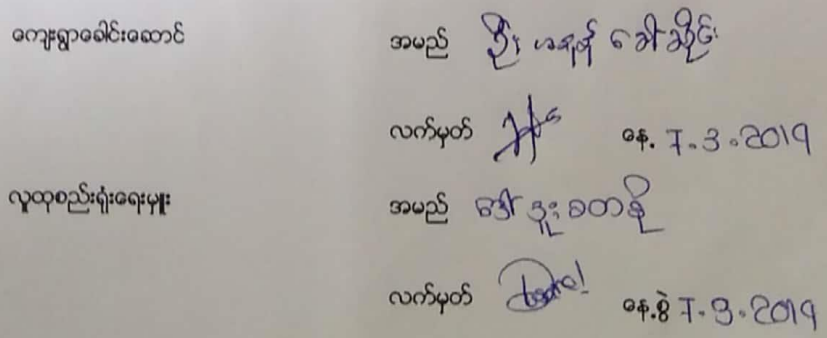 ကျေးရွာခေါင်းဆောင် အမည် ဦး ဟရန် ခေါ ဆိုင်း
လက်မှတ် နေ့. 7.3.2019
လူထုစည်းရုံးရေးမှူး အမည် ဒေါ် ဒူး ခတန်
လက်မှတ် နေ့.စွဲ 7.3.2019